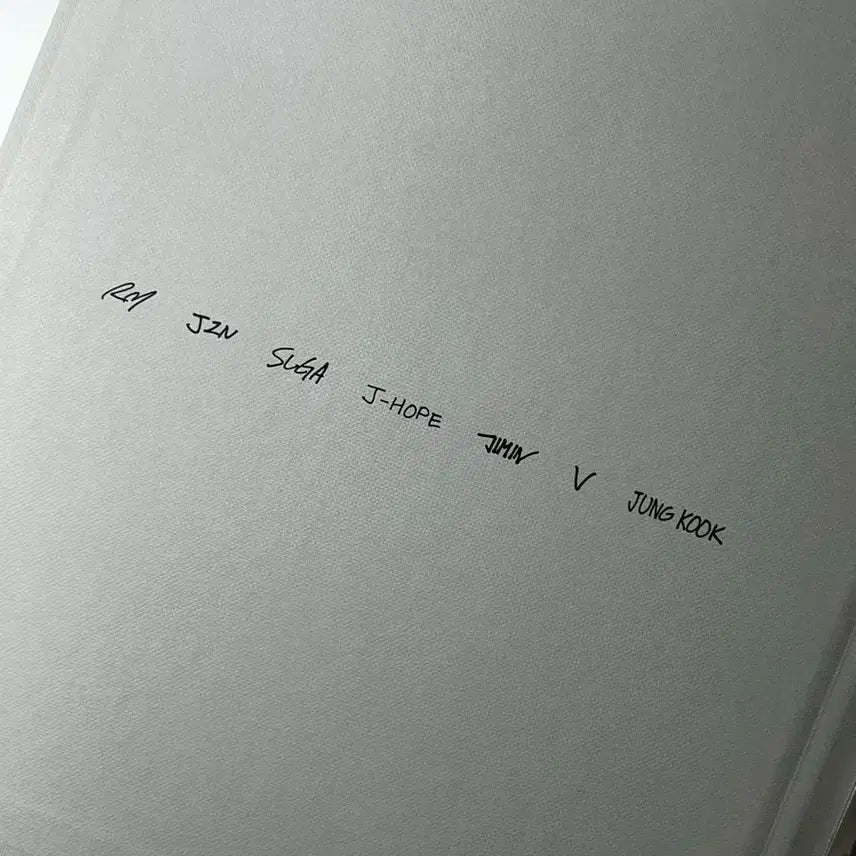 RM JIN SUGA J-HOPE JIMIN V JUNG KOOK